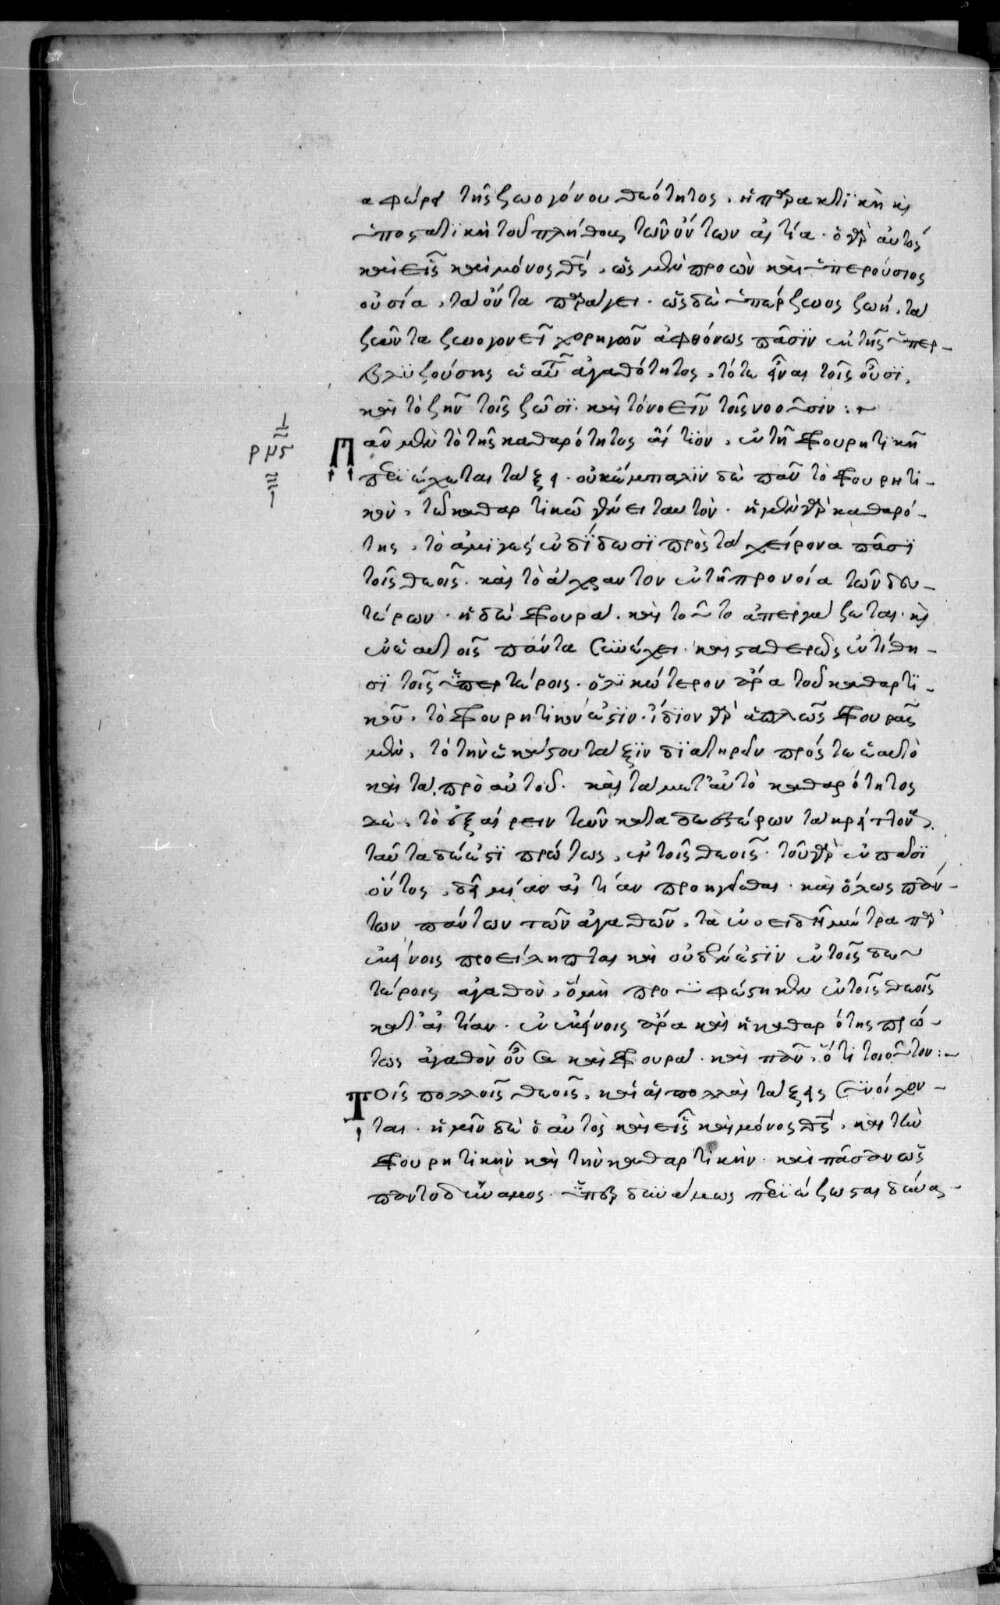 α φώρα τῆς ζωογόνου θεότητος. ἡ παρακτικὴ καὶ
ὑποστατικὴ τοῦ πλήθους τῶν ὄντων αἰτία. ὁ γὰρ αὐτὸς
καὶ εἷς καὶ μόνος θς, ὡς μὲν προὼν καὶ ὑπερούσιος
οὐσία, τὰ ὄντα παράγει. ὡς δὲ ὑπάρξεως ζωή, τὰ
ζῶντα ζωογονεῖ χορηγῶν ἀφθόνως πᾶσιν ἐκ τῆς ὑπερ-
βλυζούσης ἑαυτοῦ ἀγαθότητος, τό τε εἶναι τοῖς οὖσι,
καὶ τὸ ζῆν τοῖς ζῶσι καὶ τὸ νοεῖν τοῖς νοοῦσιν:~
ρμς
Πᾶν μὲν τὸ τῆς καθαρότητος αἴτιον, ἐν τῇ φρουρητικῇ
περιέχεται τάξει. οὐκ ἔμπαλιν δὲ πᾶν τὸ φρουρητι-
κὸν, τῷ καθαρτικῷ γένει ταυτόν. ἡ μὲν γὰρ καθαρό-
της, τὸ ἀμιγὲς ἐνδίδωσι πρὸς τὰ χείρονα πᾶσι
τοῖς θεοῖς. καὶ τὸ ἄχραντον ἐν τῇ προνοία τῶν δευ-
τέρων. ἡ δὲ φρουρὰ. καὶ τοῦτο ἀπεργάζεται. καὶ
ἐν ἑαυτοῖς πάντα συνέχει. καὶ σταθερῶς ἐντίθη-
σι τοῖς ὑπερτέροις. ὁλικώτερον ἄρα τοῦ καθαρτι-
κοῦ, τὸ φρουρητικόν ἐστιν. ἴδιον γὰρ ἁπλῶς φρουρᾶς
μὲν, τὸ τὴν ἑκάστου τάξιν διατηρεῖν πρός τε ἑαυτὸ
καὶ τὰ πρὸ αὐτοῦ. καὶ τὰ μετ' αὐτὸ καθαρότητος
δὲ, τὸ ἐξαίρειν τῶν καταδεεστέρων τὰ κρείττονα.
ταῦτα δέ ἐστι πρώτως, ἐν τοῖς θεοῖς. τοῦ γὰρ ἐν πᾶσι
ὄντος, δεῖ μίαν αἰτίαν προηγεῖσθαι. καὶ ὅλως πάν-
των πάντων τῶν ἀγαθῶν, τὰ ἑνοειδῆ μέτρα παρ'
ἐκείνοις προείληπται καὶ οὐδέν ἐστιν ἐν τοῖς δευ
τέροις ἀγαθὸν, ὃ μὴ προϋφέστηκεν ἐν τοῖς θεοῖς
κατ' αἰτίαν. ἐν ἐκείνοις ἄρα καὶ ἡ καθαρότης πρώ-
τως ἀγαθὸν οὖσα καὶ φρουρὰ. καὶ πᾶν, ὅτι τοιοῦτον:~
Τοῖς πολλοῖς θεοῖς, καὶ αἱ πολλαὶ τάξεις συνοίχον-
ται. ἡμῖν δὲ ὁ αὐτὸς καὶ εἷς καὶ μόνος θς, καὶ τὴν
φρουρητικὴν καὶ τὴν καθαρτικὴν. καὶ πᾶσαν ὡς
παντοδύναμος. ὑπὲρ δυνάμεως περιέζωσται δύνα-